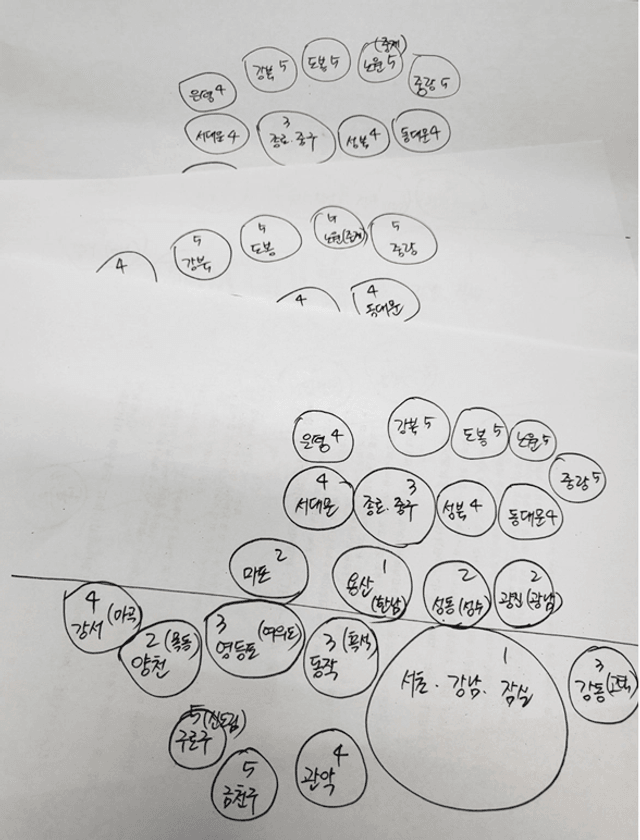 (중계)
강북 5
도봉 5
노원 5
은평 4
중랑 5
서대문 4
3
종로·중구
성북 4
동대문 4
5
강북
5
도봉
4
노원(중계)
5
중랑
4
4
4
동대문
은평 4
강북 5
도봉 5
노원 5
중랑 5
4
서대문
3
종로·중구
성북 4
동대문 4
마포 2
1
용산
(한남)
2
성동(성수)
2
광진(광남)
4
강서 (마곡)
2 (목동)
양천
3
영등포 (여의도)
3 (흑석)
동작
1
서초·강남·잠실
3
강동(고덕)
5 (신도림)
구로구
5
금천구
4
관악